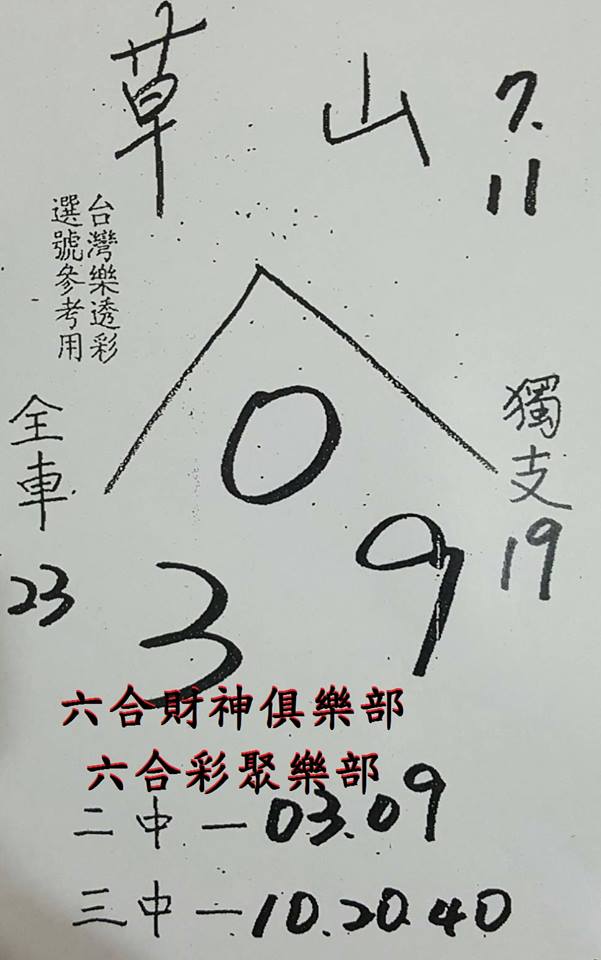 草山
7.
11
台灣樂透彩
選號參考用
全車
23
獨支
19
0
3 9
六合財神俱樂部
六合彩聚樂部
二中一03.09
三中一10.20.40